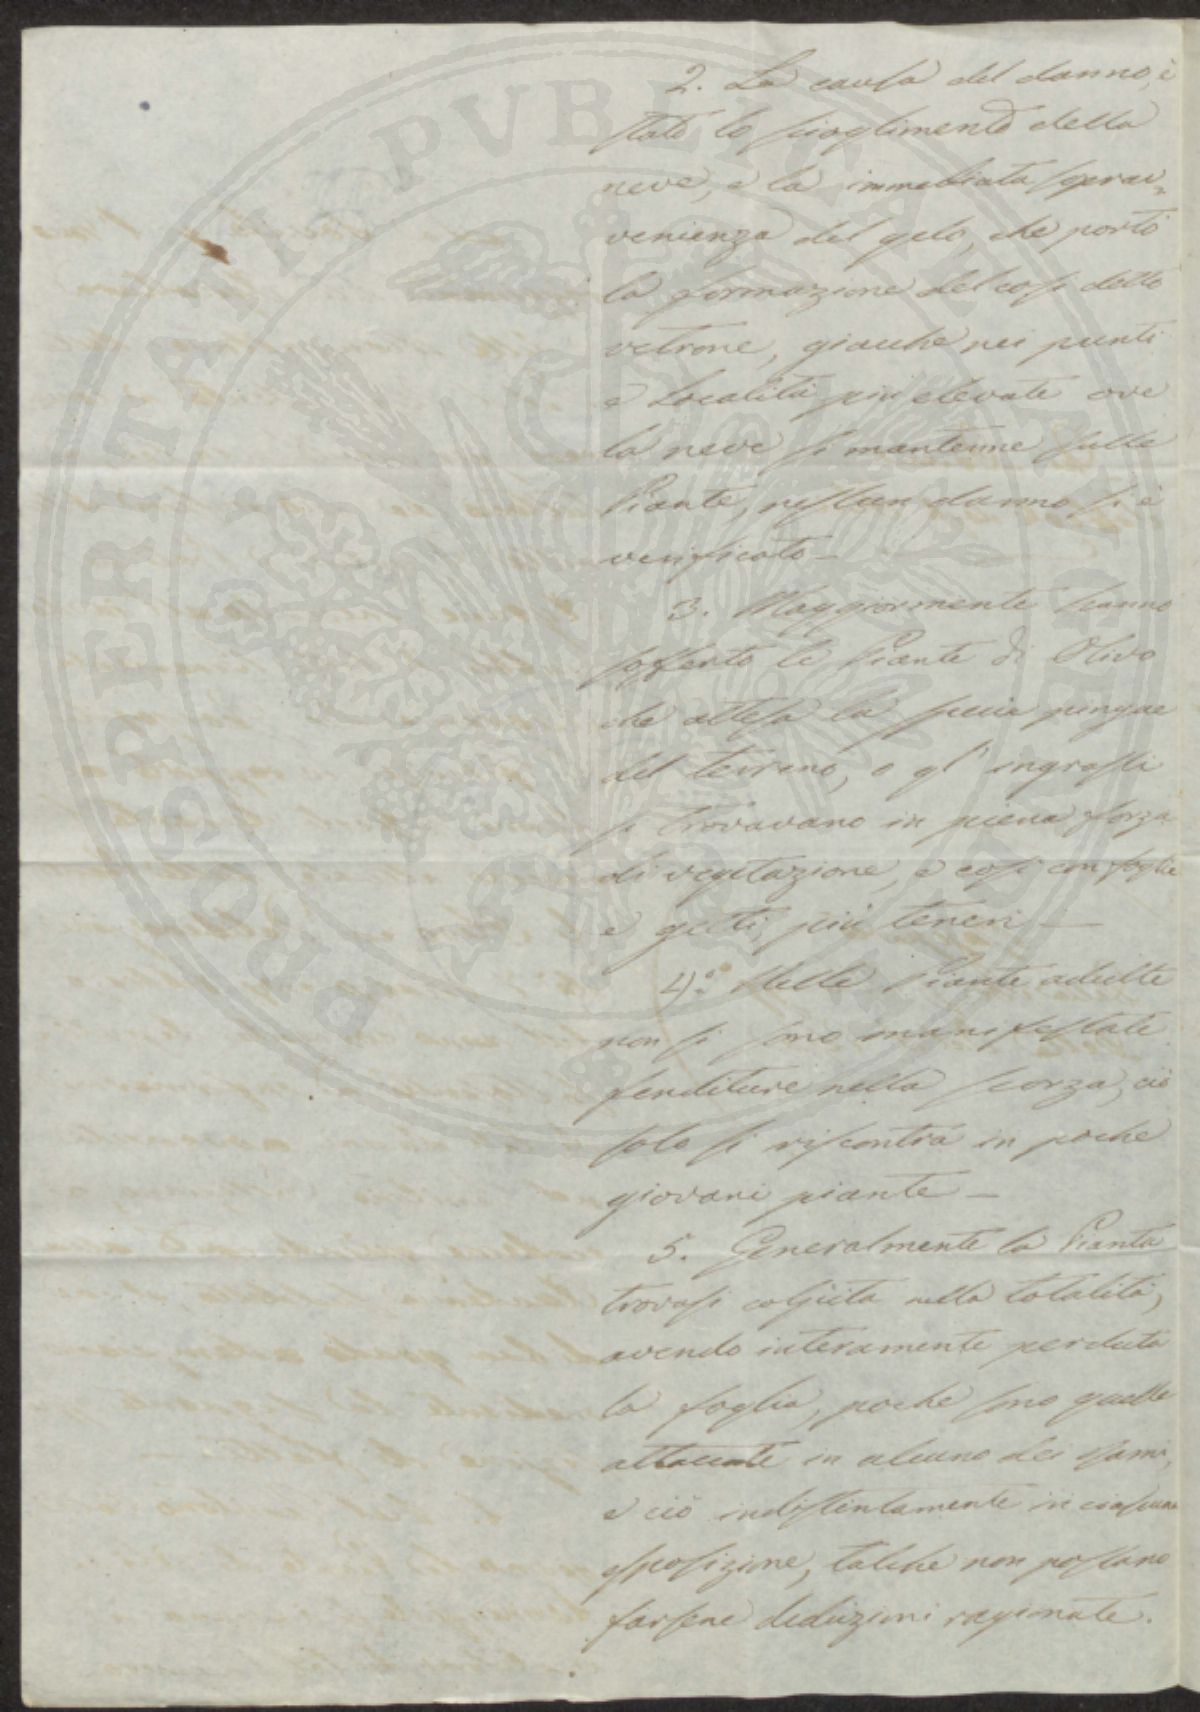 2. La causa del danno, è
stato lo scioglimento della
neve, e la immediata soprav=
venienza del gelo, che portò
la formazione del così detto
vetrone, giacchè nei punti
e Località più elevate ove
la neve si mantenne sulle
Piante, nessun danno si è
verificato —
3. Maggiormente hanno
sofferto le Piante di Olivo
che attesa la specie pingue
del terreno, o gl' ingrassi
si trovavano in piena forza
di vegitazione, e così con foglie
e getti più teneri —
4)° Nelle Piante adulte
non si sono manifestate
fenditure nella scorza, ciò
solo si riscontra in poche
giovani piante —
5. Generalmente la Pianta
trovasi colpita nella totalità,
avendo interamente perduta
la foglia, poche sono quelle
attaccate in alcuno dei rami,
e ciò indistintamente in ciascuna
esposizione, talchè non possano
farsene deduzioni ragionate.
PROSPERITATI PVBLICAE AVGENDAE